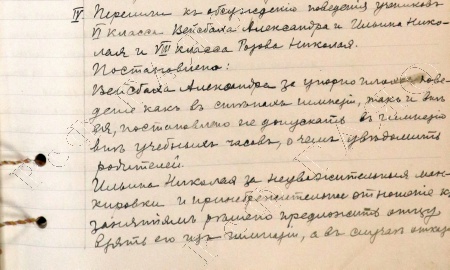 IV. Перешли къ обсужденію поведенія учениковъ
VI класса Вейсбаха Александра и Ильина Нико-
лая и VIII класса Горова Николая.
Постановлено:
Вейсбаха Александра за упорно плохое пове-
деніе какъ въ стѣнахъ гимназіи, такъ и внѣ
ея, постановлено не допускать въ гимназію
внѣ учебныхъ часовъ, о чемъ увѣдомить
родителей.
Ильина Николая за неуважительныя ман-
кировки и пренебрежительное отношеніе къ
занятіямъ рѣшено предложить отцу
взять его изъ гимназіи, а въ случаѣ отказа